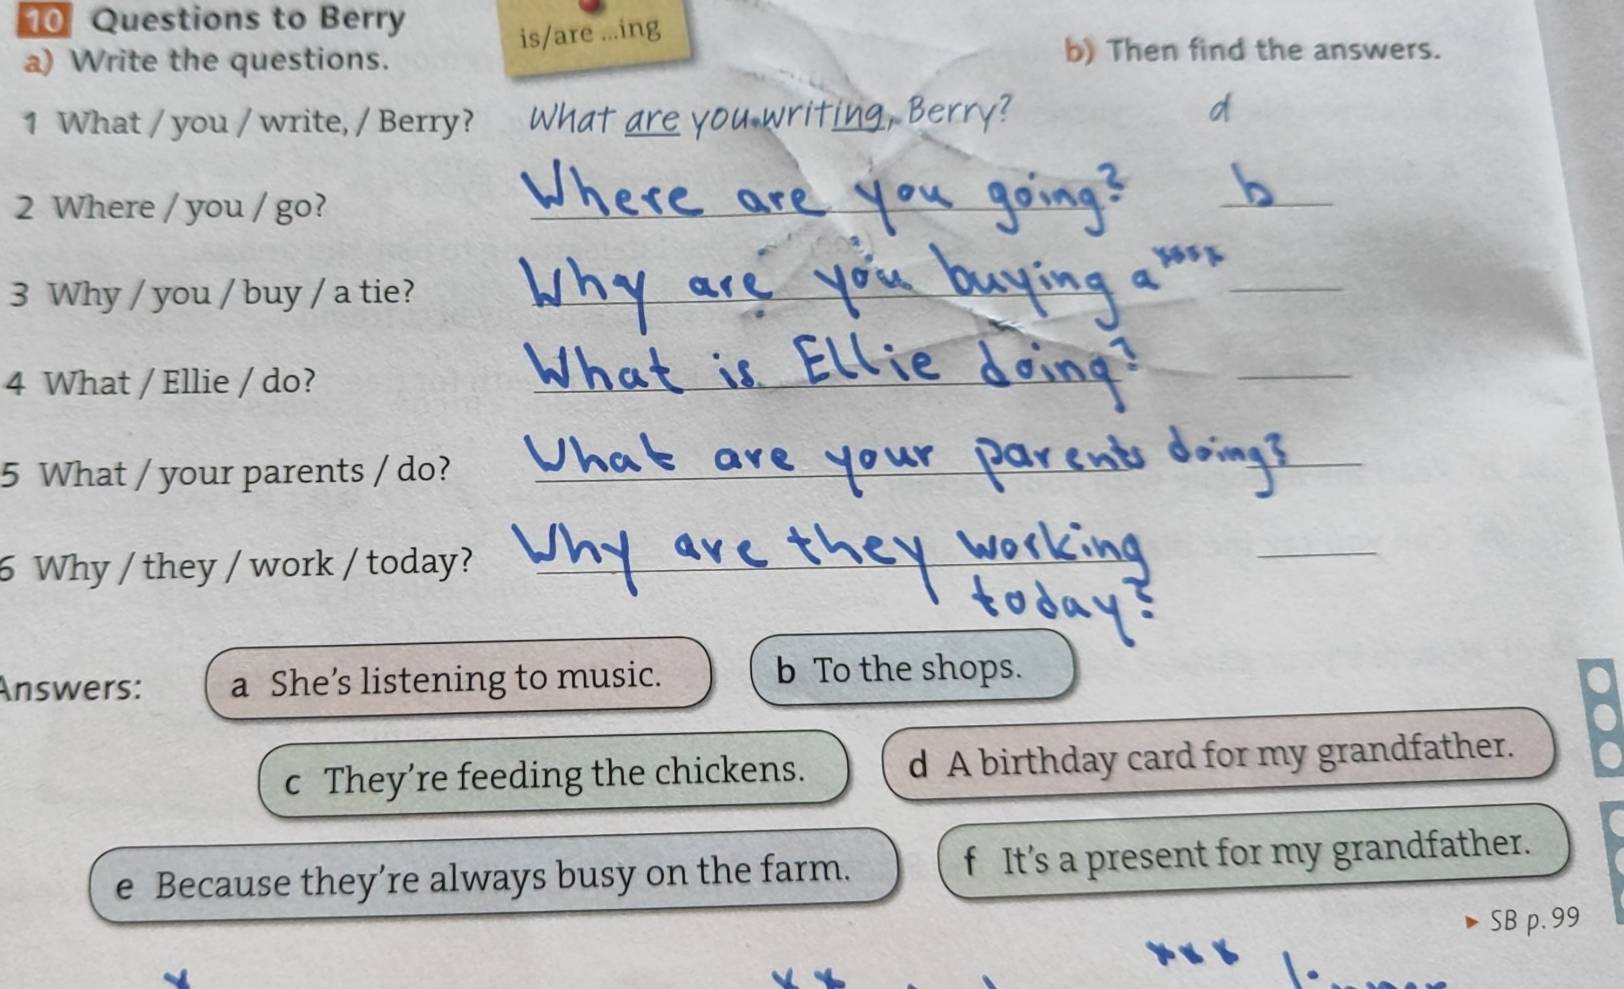 10 Questions to Berry
is/are ...ing
a) Write the questions.
b) Then find the answers.
1 What / you / write, / Berry? What are you writing, Berry? d
2 Where / you / go? Where are you going? b
3 Why / you / buy / a tie? Why are you buying a ****
4 What / Ellie / do? What is Ellie doing?
5 What / your parents / do? What are your parents doing?
6 Why / they / work / today? Why are they working
today?
Answers:
a She's listening to music.
b To the shops.
c They're feeding the chickens.
d A birthday card for my grandfather.
e Because they're always busy on the farm.
f It's a present for my grandfather.
▸ SB p. 99
* ** ***